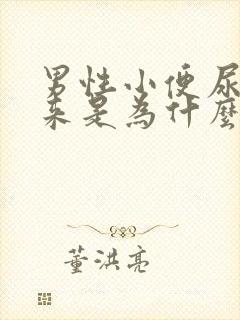 男性小便尿
来是為什麼
董洪亮